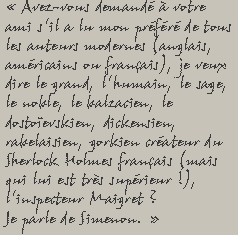 « Avez-vous demandé à votre
ami s'il a lu mon préféré de tous
les auteurs modernes (anglais,
américains ou français), je veux
dire le grand, l'humain, le sage,
le noble, le balzacien, le
dostoïevskien, dickensien,
rabelaisien, gorkien créateur du
Sherlock Holmes français (mais
qui lui est très supérieur !),
l'inspecteur Maigret ?
Je parle de Simenon. »